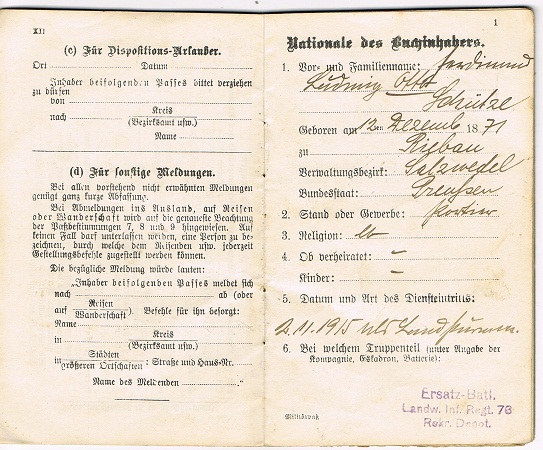 XII
(c) Für Dispositions-Urlauber.
Ort Datum
Inhaber beifolgenden Passes bittet verziehen
zu dürfen
von
nach Kreis
(Bezirksamt usw.)
Name
(d) Für sonstige Meldungen.
Bei allen vorstehend nicht erwähnten Meldungen
genügt ganz kurze Abfassung.
Bei Abmeldungen ins Ausland, auf Reisen
oder Wanderschaft wird auf die genaueste Beachtung
der Paßbestimmungen 7, 8 und 9 hingewiesen. Auf
keinen Fall darf unterlassen werden, eine Person zu be-
zeichnen, durch welche dem Reisenden usw. jederzeit
Gestellungsbefehle zugestellt werden können.
Die bezügliche Meldung würde lauten:
„Inhaber beifolgenden Passes meldet sich
nach ab (oder
auf Reisen
Wanderschaft). Befehle für ihn besorgt:
Name
in Kreis
(Bezirksamt usw.)
in Städten
größeren Ortschaften: Straße und Haus-Nr.
Name des Meldenden ."
1
Nationale des Buchinhabers.
1. Vor- und Familienname: Ferdinand
Ludwig Otto
Schütze
Geboren am 12ten Dezemb. 1871
zu Riebau
Verwaltungsbezirk: Salzwedel
Bundesstaat: Preußen
2. Stand oder Gewerbe: Portier
3. Religion:
4. Ob verheiratet: -
Kinder: -
5. Datum und Art des Diensteintritts:
2.11.1915 als Landsturmm.
6. Bei welchem Truppenteil (unter Angabe der
Kompagnie, Eskadron, Batterie):
Ersatz-Batl.
Landw. Inf. Regt. 76
Rekr. Depot.
Militärpaß